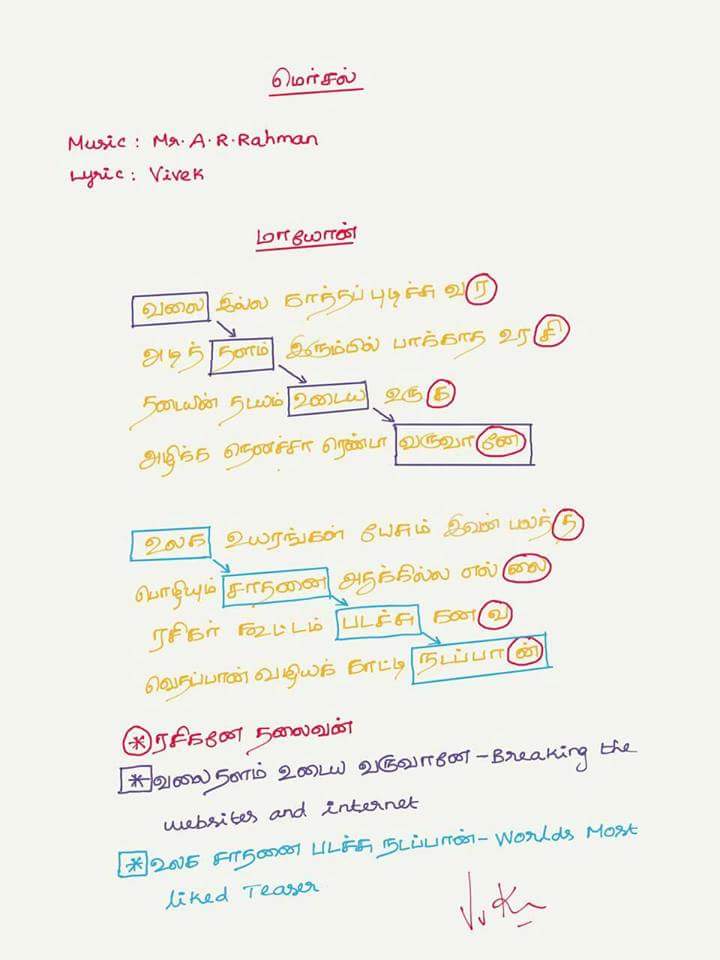 மெர்சல்
Music : Mr. A.R.Rahman
Lyric : Vivek
மாயோன்
வலை இல்ல காத்தப் புடிச்சு வர
அடித் தளம் இரும்பில் பாக்காத உரசி
நடையின் நயம் உடைய உருக
அழிக்க நெனச்சா ரெண்டா வருவானே
உலக உயரங்கள் பேசும் இவன் பலத்த
பொழியும் சாதனை அதுக்கில்ல எல்லை
ரசிகர் கூட்டம் படச்சு கனவ
வெதப்பான் வழியக் காட்டி நடப்பான்
* ரசிகனே தலைவன்
* வலை தளம் உடைய வருவானே - Breaking the
websites and internet
* உலக சாதனை படச்சு நடப்பான் - Worlds Most
liked Teaser